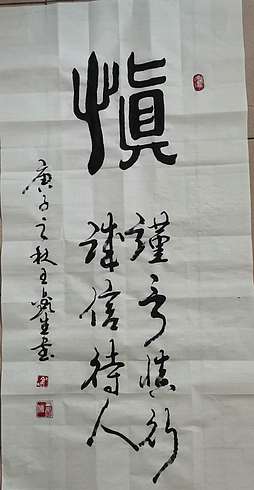 慎
謹言慎行
诚信待人
庚子之秋王生书